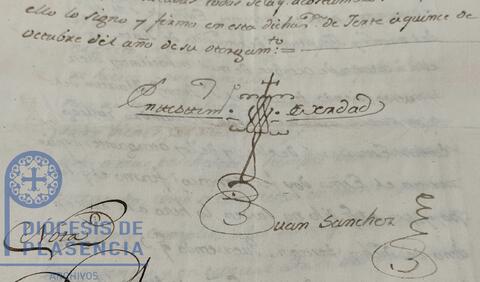 ello lo signo y firmo en esta dicha V.ª de Jerte à quince de
Octubre del año de su otorgam.to =
En testim.º de Verdad
Juan Sanchez
Nota
DIÓCESIS DE
PLASENCIA
ARCHIVOS